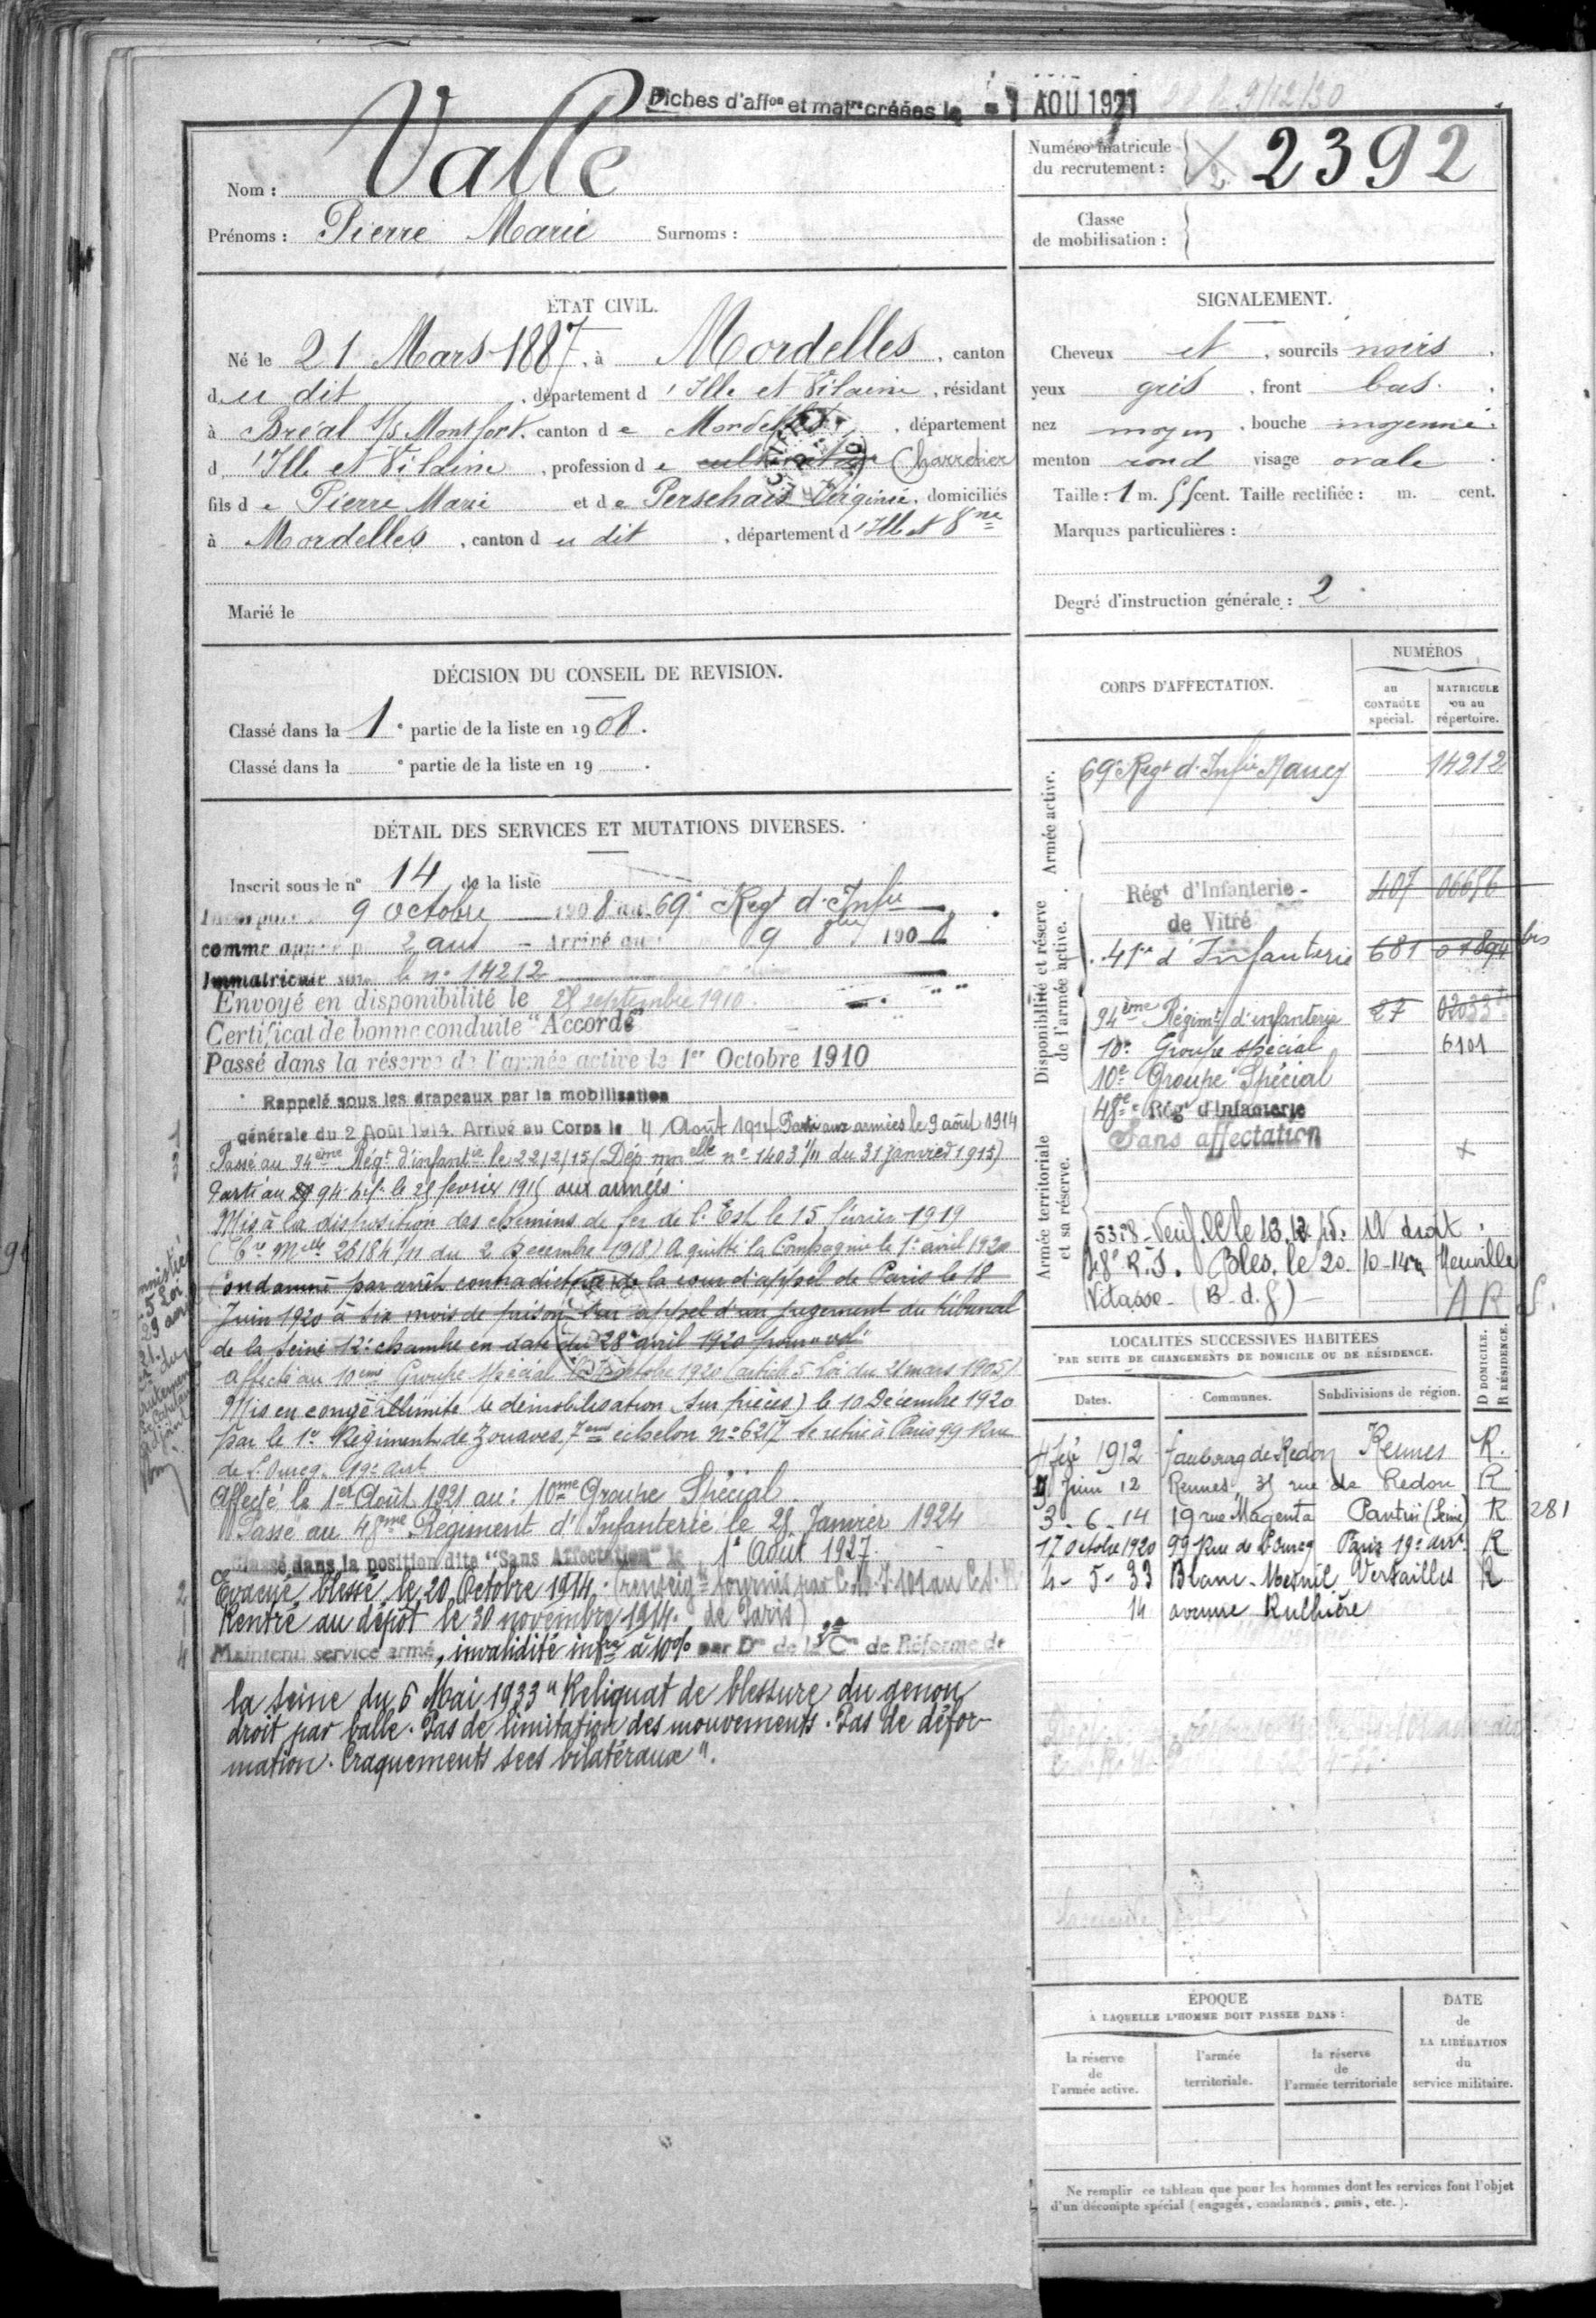 Fiches d'affon et matre créées le - 1 AOU 1921
9/12/30
Nom : Vallé
Prénoms : Pierre Marie Surnoms :
Numéro matricule
du recrutement : 2392
Classe
de mobilisation :
ÉTAT CIVIL.
Né le 21 Mars 1887, à Mordelles, canton
du dit, département d'Ille et Vilaine, résidant
à Bréal s/s Montfort, canton de Mordelles, département
d'Ille et Vilaine, profession de cultivateur Charretier
fils de Pierre Marie et de Perschais Virginie, domiciliés
à Mordelles, canton du dit, département d'Ille et Vne
Marié le
SIGNALEMENT.
Cheveux et, sourcils noirs.
yeux gris, front bas.
nez moyen, bouche moyenne.
menton rond visage ovale.
Taille : 1 m. 55 cent. Taille rectifiée : m. cent.
Marques particulières :
Degré d'instruction générale : 2
DÉCISION DU CONSEIL DE REVISION.
Classé dans la 1e partie de la liste en 1908.
Classé dans la e partie de la liste en 19 .
DÉTAIL DES SERVICES ET MUTATIONS DIVERSES.
Inscrit sous le n° 14 de la liste
9 octobre 1908 au 69e Regt d'Infie
comme appelé p 2 ans - Arrivé au 9 8bre 1908
Immatriculé sous le n° 14212
Envoyé en disponibilité le 25 septembre 1910.
Certificat de bonne conduite "Accordé"
Passé dans la réserve de l'armée active le 1er Octobre 1910
Rappelé sous les drapeaux par la mobilisation
générale du 2 Août 1914. Arrivé au Corps le 4 Août 1914 Parti aux armées le 9 août 1914
Passé au 94ème Régt d'infantie le 22/2/15 (Dép. mnelle n° 1403 1/11 du 31 janvier 1915)
Parti au 94 Inf. le 25 fevrier 1915 aux armées.
Mis à la disposition des chemins de fer de l'Est le 15 février 1919
(Cre Mlle 28184 1/11 du 2 Decembre 1918) A quitté la Compagnie le 1er avril 1920
Condamné par arrêt contradictoire de la cour d'appel de Paris le 18
Juin 1920 à six mois de prison sur appel d'un jugement du tribunal
de la Seine 12e chambre en date du 28 avril 1920 pour vol
affecté au 10eme Groupe spécial octobre 1920 (article 5 Loi du 21 mars 1905)
Mis en congé illimité de démobilisation (sur pièces) le 10 Décembre 1920
par le 1er Régiment de Zouaves, 7eme échelon n° 6217 se retire à Paris 99 Rue
de L'Ourcq. 19e arrt
Affecté le 1er Août 1921 au : 10me Groupe Spécial.
Passé au 48eme Regiment d'Infanterie le 25 Janvier 1924
Classé dans la position dite "Sans Affectation" le 1er Août 1927.
Evacué, blessé, le 20 Octobre 1914. (renseigts fournis par
Rentré au dépôt le 30 novembre 1914. de Paris)
Maintenu service armé, invalidité infre à 10% par Don de la Con de Réforme de
la Seine du 6 Mai 1933 "Reliquat de blessure du genou
droit par balle. Pas de limitation des mouvements. Pas de défor-
mation. Craquements secs bilatéraux".
CORPS D'AFFECTATION.
NUMÉROS
au CONTRÔLE spécial.
MATRICULE ou au répertoire.
Armée active.
69e Regt d'Infie Nancy 14212
Disponibilité et réserve de l'armée active.
Régt d'Infanterie de Vitré 407 06656
41e d'Infanterie 681 01894 bis
94ème Régimt d'infanterie 27 02033
10e Groupe spécial 6101
10e Groupe Spécial
48e Régt d'Infanterie
Sans affectation
Armée territoriale et sa réserve.
le 13.12.15. droit.
48e R.I. Bles. le 20-10-14 à Neuville
Vitasse - (B.d.g) -
LOCALITÉS SUCCESSIVES HABITÉES
PAR SUITE DE CHANGEMENTS DE DOMICILE OU DE RÉSIDENCE.
D DOMICILE.
R RÉSIDENCE.
Dates. Communes. Subdivisions de région.
4 fév 1912 faubourg de Redon Rennes R.
9 Juin 12 Rennes, 35 rue de Redon R
3-6-14 19 rue Magenta Pantin (Seine) R 281
17 octobre 1920 99 Rue de l'Ourcq Paris 19e arrt R
4-5-33 Blanc-Mesnil Versailles R
14 avenue Rulhière
ÉPOQUE
À LAQUELLE L'HOMME DOIT PASSER DANS :
la réserve de l'armée active.
l'armée territoriale.
la réserve de l'armée territoriale
DATE
de
LA LIBÉRATION
du
service militaire.
Ne remplir ce tableau que pour les hommes dont les services font l'objet
d'un décompte spécial (engagés, condamnés, omis, etc.).